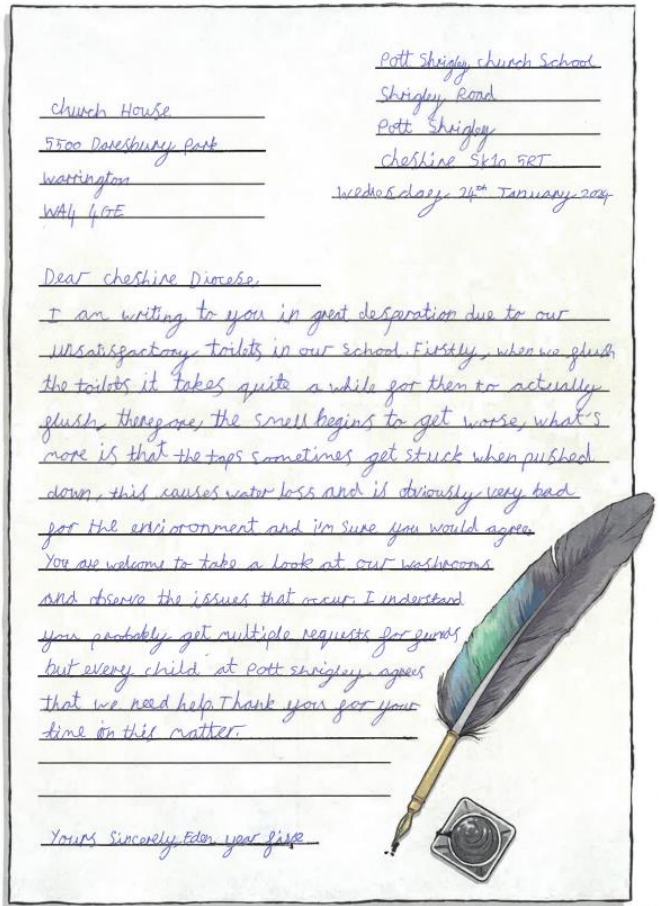 Pott Shrigley church School
Shrigley Road
Pott Shrigley
Cheshire SK10 5RT
Wednesday 24th January 2024
Church House
5500 Daresbury Park
Warrington
WA4 4GE
Dear Cheshire Diocese,
I am writing to you in great desperation due to our
unsatisfactory toilets in our school. Firstly, when we flush
the toilets it takes quite a while for them to actually
flush, therefore, the smell begins to get worse, what's
more is that the taps sometimes get stuck when pushed
down, this causes water loss and is obviously very bad
for the envioronment and i'm sure you would agree.
You are welcome to take a look at our washrooms
and observe the issues that occur. I understand
you probably get multiple requests for funds
but every child at Pott Shrigley agrees
that we need help. Thank you for your
time on this matter.
Yours Sincerely, Eden year five